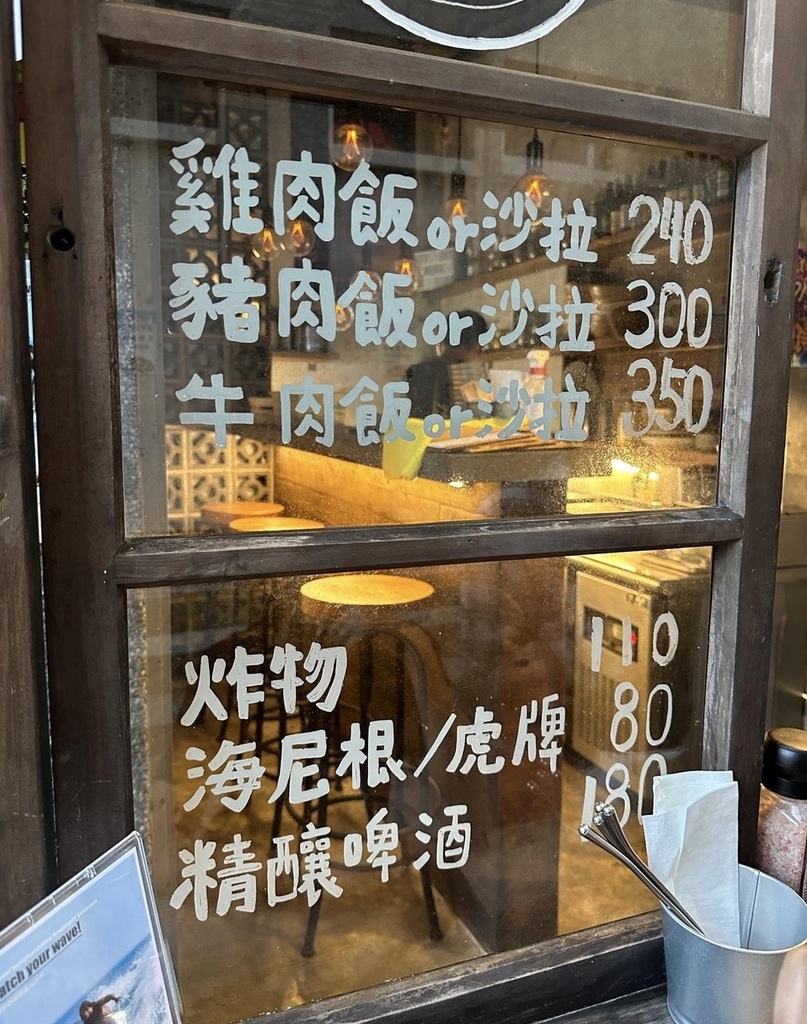 雞肉飯or沙拉 240
豬肉飯or沙拉 300
牛肉飯or沙拉 350
炸物 110
海尼根/虎牌 80
精釀啤酒 180
atch your wave!